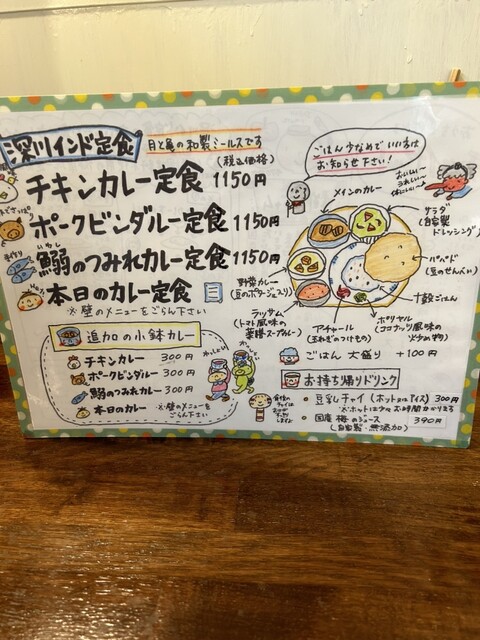 深川インド定食
月と亀の和製ミールスです
(税込価格)
チキンカレー定食 1150円
ポークビンダルー定食 1150円
いわし
鰯のつみれカレー定食 1150円
本日のカレー定食
※壁のメニューをごらん下さい
追加の小鉢カレー
チキンカレー 300円
ポークビンダルー 300円
鰯のつみれカレー 300円
本日のカレー ※壁のメニューを
ごらん下さい
ごはん少なめでいい方は
お知らせ下さい!
おいしい〜
うれしい〜
体にいい〜
メインのカレー
サラダ
(自家製
ドレッシング)
パパド
(豆のせんべい)
野菜カレー
(豆のポタージュ入り)
ラッサム
(トマト風味の
薬膳スープカレー)
アチャール
(玉ねぎのつけもの)
ポリヤル
(ココナッツ風味の
炒め物)
十穀ごはん
ごはん 大盛り +100円
お持ち帰りドリンク
・豆乳チャイ (ホット又はアイス) 300円
※ホットは少々お時間かかります
・国産 梅のジュース 390円
(自家製・無添加)